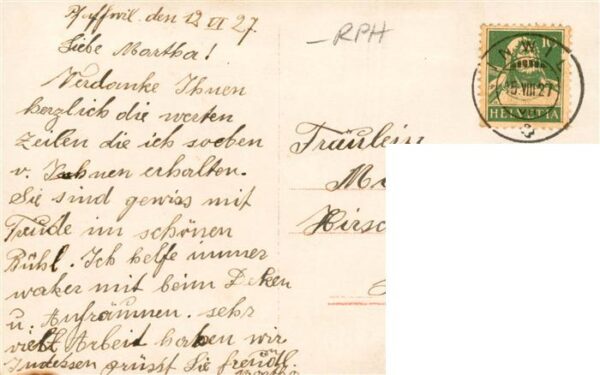 Pfaffwil. den 12 VI 27.
Liebe Martha!
Verdanke Ihnen
herzlich die werten
Zeilen die ich soeben
v. Ihnen erhalten.
Sie sind gewiss mit
Freude im schönen
Bühl. Ich helfe immer
waker mit beim
u. Aufräumen. sehr
viel Arbeit haben wir
Indessen grüsst Sie freudl.
–RPH
INWIL
15.VIII.27
HELVETIA
Fräulein
M
Hirsc